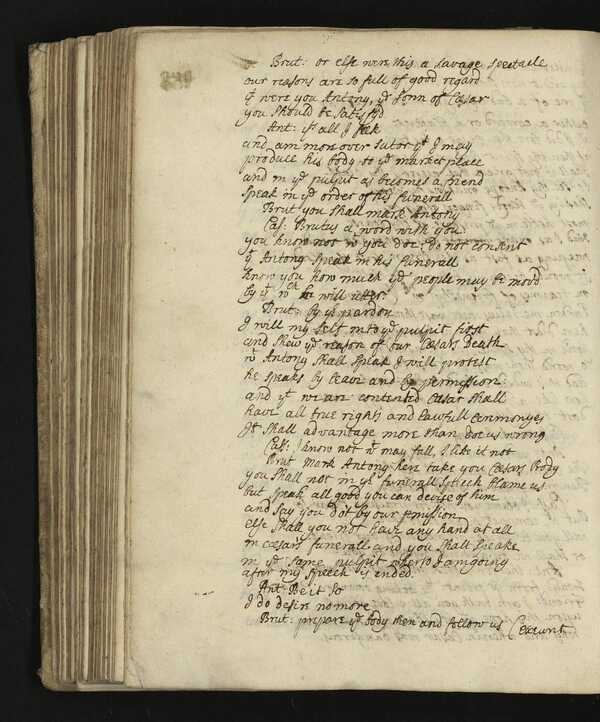 Brut: or else were this a savage spectacle
our reasons are so full of good regard
yt were you Antony, ye sonn of Cæsar
you should be satisfyd
Ant: yts all I seek
and am more over sutor yt I may
produce his body to ye market place
and in ye pulpit as becomes a friend
speak in ye order of his funerall
Brut you shall mark Antony
Cas: Brutus a word with you
you know not wt you doe, do not consent
yt Antony speak in his funerall
know you how much ye people may be mov'd
by yt wch he will utter
Brut: by yr pardon
I will my self into ye pulpit first
and shew ye reason of our Cæsars death
wt Antony shall speak I will protest
he speaks by leave and by permission
and yt we are contented Cæsar shall
have all true rights and lawfull ceremonyes
It shall advantage more than doe us wrong
Cas: I know not wt may fall, I like it not
Brut Mark Antony here take you Cæsars body
you shall not in yr funerall speech blame us
but speak all good you can devise of him
and say you do't by our pmission
else shall you not have any hand at all
in cæsars funerall and you shall speake
in ye same pulpit wherto I am going
after my speech is ended.
Ant: Be it so
I do desire no more
Brut: prepare ye body then and follow us (exeunt